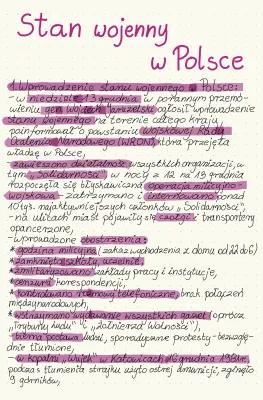 Stan wojenny
w Polsce
1. Wprowadzenie stanu wojennego w Polsce:
- w niedzielę 13 grudnia w porannym przemó-
wieniu gen. Wojciech Jaruzelski ogłosił wprowadzenie
stanu wojennego na terenie całego kraju,
poinformował o powstaniu Wojskowej Rady
Ocalenia Narodowego (WRON), która przejęła
władzę w Polsce,
- zawieszono działalność wszystkich organizacji, w
tym „Solidarność” w nocy z 12 na 13 grudnia
rozpoczęła się błyskawiczna operacja milicyjno -
wojskowa - zatrzymano i internowano ponad
10 tys. najaktywniejszych członków „Solidarność”,
- na ulicach miast pojawiły się czołgi i transportery
opancerzone,
- wprowadzone obostrzenia:
* godzina milicyjna (zakaz wychodzenia z domu od 22 do 6)
* zamknięto szkoły, uczelnie
* zmilitaryzowano zakłady pracy i instytucje,
* cenzura korespondencji,
* kontrolowano rozmowy telefoniczne, brak połączeń
międzynarodowych,
* wstrzymano wydawanie wszystkich gazet (oprócz
„Trybuny Ludu” i „Żołnierza Wolności”),
- bierna postawa ludzi, sporadyczne protesty - bezwzglę-
dnie tłumione,
- w kopalni „Wujek” w Katowicach 16 grudnia 1981 r.
podczas tłumienia strajku użyto ostrej amunicji, zginęło
9 górników,